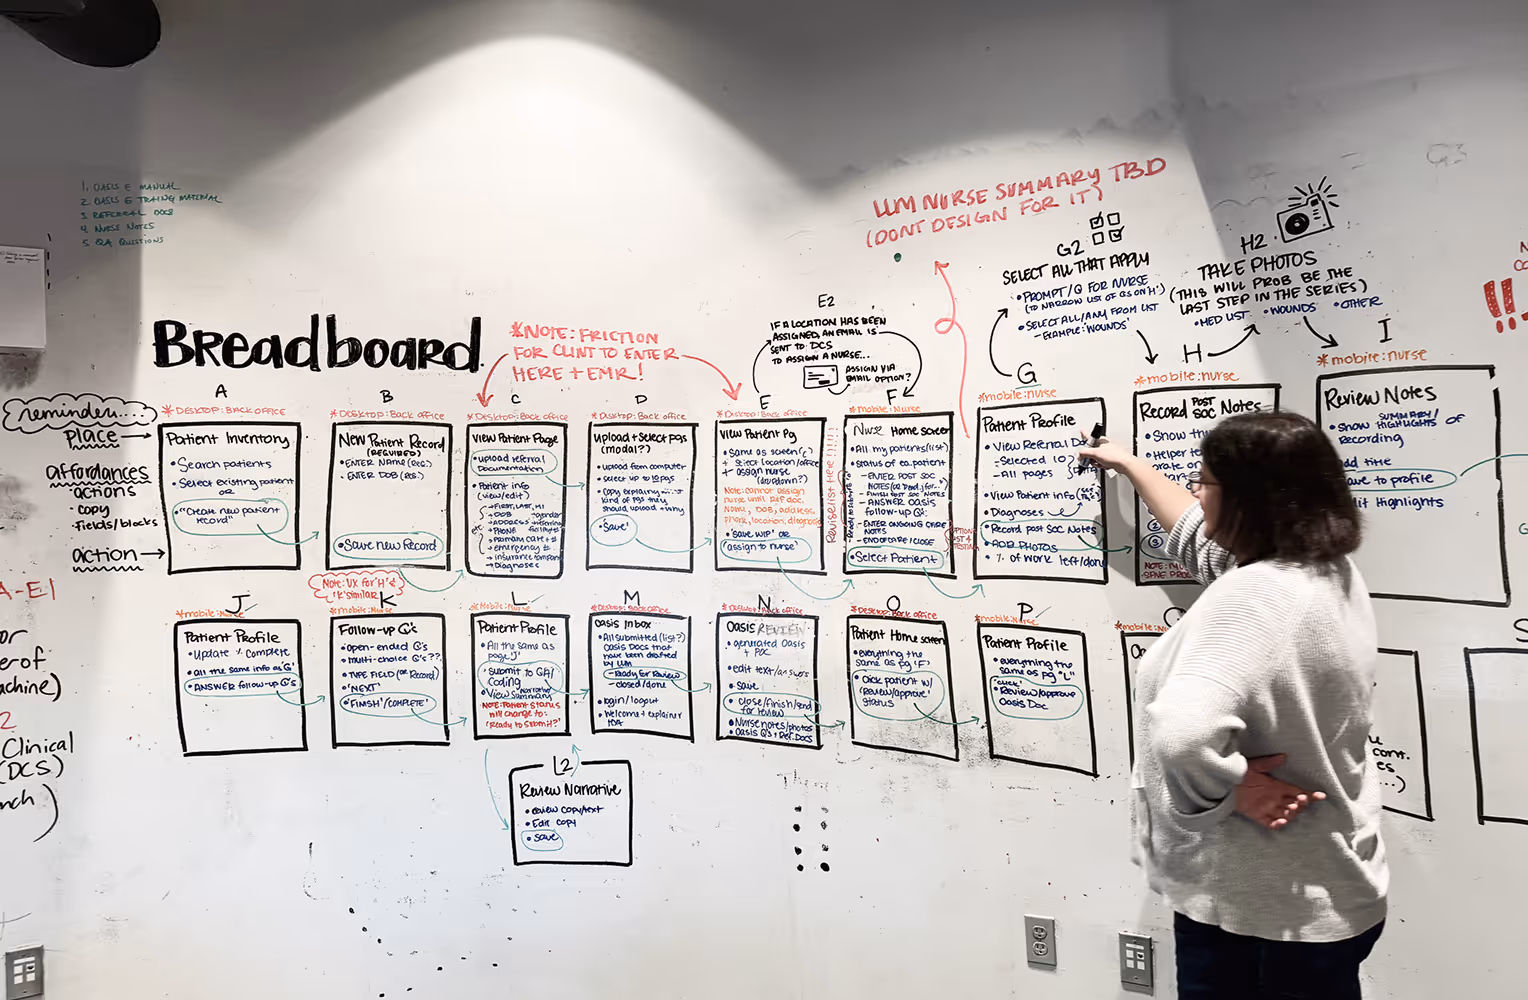 1. OASIS E MANUAL
2. OASIS E TRAING MATERIAL
3. REFERRAL DOCS
4. NURSE NOTES
5. QA QUESTIONS
BreadboaRd.
*NOTE: FRICTION
FOR CLINT TO ENTER
HERE + EMR!
LLM NURSE SUMMARY TBD
(DONT DESIGN FOR IT)
E2
IF A LOCATION HAS BEEN
ASSIGNED, AN EMAIL IS
SENT TO DCS
TO ASSIGN A NURSE...
ASSIGN VIA
EMAIL OPTION?
G2
SELECT ALL THAT APPLY
• PROMPT/Q FOR NURSE
(TO NARROW LIST OF QS ON 'H')
• SELECT ALL/ANY FROM LIST
- EXAMPLE: 'WOUNDS'
H2
TAKE PHOTOS
(THIS WILL PROB BE THE
LAST STEP IN THE SERIES)
• MED LIST • WOUNDS • OTHER
G3
!!
reminder....
place
affordances
- actions
- copy
- Fields/blocks
action
A
*DESKTOP: Back office
Patient Inventory
• Search patients
• Select existing patient
OR
• "Create new patient
record"
B
*DESKTOP: Back office
New Patient Record
(REQUIRED)
• ENTER NAME (REQ.)
• ENTER DOB (REQ.)
• Save new Record
Note: UX for 'H' &
'K' similar
C
*Desktop: Back office
View Patient Page
• upload referral
Documentation
• Patient info
(view/edit)
→ FIRST, LAST, MI
→ DOB
→ Diagnoses
etc
D
*DESKTOP: Back office
Upload + Select pgs
(modal?)
• upload from computer
• Select up to 10 pgs
• Copy explaining
kind of pgs they
should upload + why
• 'Save'
E
*Desktop: Back office
View Patient Pg
• Same as screen (c)
+ Select location/office
+ assign nurse
(dropdown?)
Note: cannot assign
nurse until Ref doc,
Name, DOB, address,
phone, location, diagnosis
• 'save WIP' OR
'assign to nurse'
Revise list Here !!!!!
F
*mobile: Nurse
Nurse Home screen
• All my patients (list)
• status of ea. patient
- ENTER POST SOC
- FINISH POST SOC NOTES
- ANSWER OASIS
follow-up Qs
- ENTER ONGOING CARE
NOTES
• Select Patient
G
*mobile: nurse
Patient Profile
• View Referral Do
- Selected 10
- All pages
• View Patient info
• Diagnoses
• Record post SOC Notes
• ADD PHOTOS
• % of work left/done
H
*mobile: nurse
Record POST SOC Notes
• Show
• Helper
I
*mobile: nurse
Review Notes
• Show SUMMARY/
HIGHLIGHTS of
Recording
add title
save to profile
Edit Highlights
J
*mobile: Nurse
Patient Profile
• Update % complete
• all the same info as 'G'
• ANSWER follow-up Q's
K
*mobile: Nurse
Follow-up Q's
• open-ended Q's
• multi-choice Q's??
• TYPE FIELD (OR Record)
• 'NEXT'
• 'FINISH'/COMPLETE'
L
*Mobile: Nurse
Patient Profile
• All the same as
page 'J'
• Submit to QA/
Coding
• View Narrative Summary
NOTE: Patient status
will change to:
'Ready to Submit?'
L2
Review Narrative
• Review copy/text
• Edit copy
• Save
M
*DESKTOP: Back office
Oasis Inbox
• All submitted (list?)
Oasis Docs that
have been drafted
by LLM
- Ready for Review
- closed/done
• login/logout
• Welcome + explainer
N
*Desktop: Back office
Oasis REVIEW
• generated Oasis
+ POC
• edit text/answers
• save
• close/finish/send
for review
• Nurse notes/photos
• Oasis Q's + Ref. Docs
O
*Desktop: Back office
Patient Home screen
• everything the
same as pg 'F'
• Click patient w/
'Review/approve'
status
P
*mobile: Nurse
Patient Profile
• everything the
same as pg "L"
• 'click'
Review/approve
Oasis Doc
cont.
A-E1
Clinical
(DCS)
S